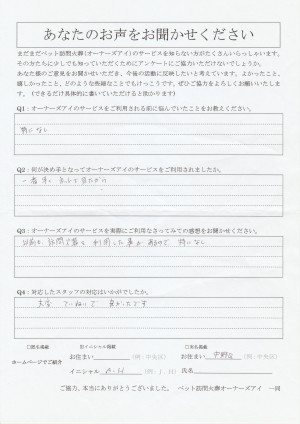 あなたのお声をお聞かせください
まだまだペット訪問火葬(オーナーズアイ)のサービスを知らない方がたくさんいらっしゃいます。
その方たちに少しでも知っていただくためにアンケートにご協力いただけないでしょうか。
あなた様のご意見をお聞かせいただき、今後の活動に反映したいと考えています。よかったこと、
嬉しかったこと、どのような些細なことでもけっこうです。ぜひご協力をよろしくお願いいたしま
す。(できるだけ具体的に書いていただけると助かります)
Q1:オーナーズアイのサービスをご利用される前に悩んでいたことをお教えください。
特になし
Q2:何が決め手となってオーナーズアイのサービスをご利用されましたか。
一番
Q3:オーナーズアイのサービスを実際にご利用なさってみての感想をお聞かせください。
以前も 訪問火葬を利用した事があるので 特になし
Q4:対応したスタッフの対応はいかがでしたか。
大変 ていねいで 良かったです
□匿名掲載 ☑イニシャル掲載 □実名掲載
お住まい (例:中央区) お住まい (例:中央区)
ホームページでご紹介
イニシャル (例:J.H) 氏名
ご協力、本当にありがとうございました。 ペット訪問火葬オーナーズアイ 一同